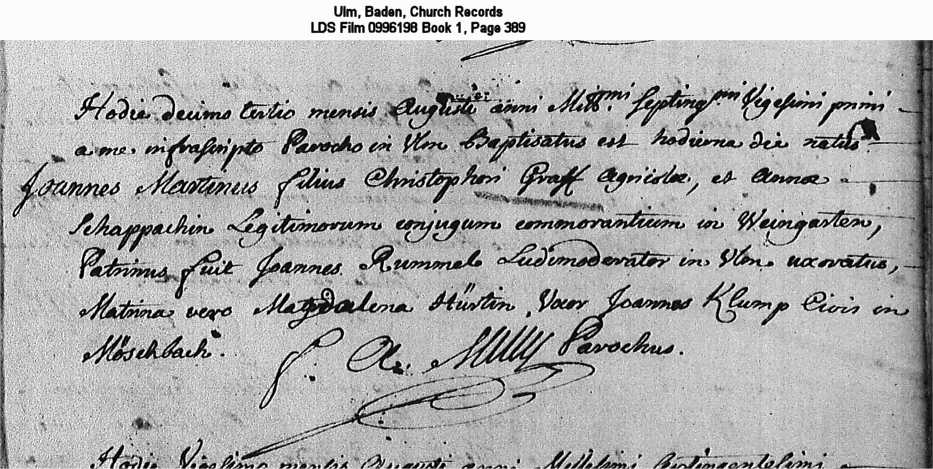 Ulm, Baden, Church Records
LDS Film 0996198 Book 1, Page 389
Hodie decimo tertio mensis Augusti anni Mill:mi Septing:mi Vigesimi primi
a me infrascripto Parocho in Ulm Baptisatus est hodierna die natus
Joannes Martinus filius Christophori Graff Agricolæ, et Annæ
Schappachin Legitimorum conjugum commorantium in Weingarten,
Patrinus fuit Joannes Rummel Ludimoderator in Ulm uxoratus,
Matrina vero Magdalena Hürtin, Uxor Joannes Klump Civis in
Möschbach.
Parochus.
Hodie Vigesimo mensis Augusti anni Millesimi